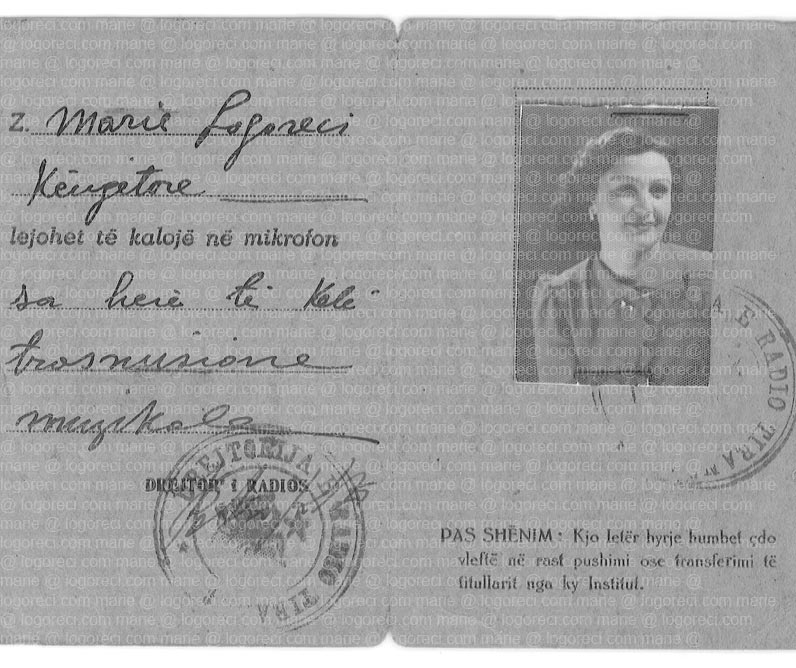 Z. Marie Logoreci
Këngëtore
lejohet të kalojë në mikrofon
sa herë të ketë
trasmusione
muzikale
DREJTOR' I RADIOS
DREJTORIJA E RADIO TIRA
PAS SHËNIM: Kjo letër hyrje humbet çdo
vleftë në rast pushimi ose transferimi të
titullarit nga ky Institut.
A E RADIO TIRA
marie @ logoreci.com